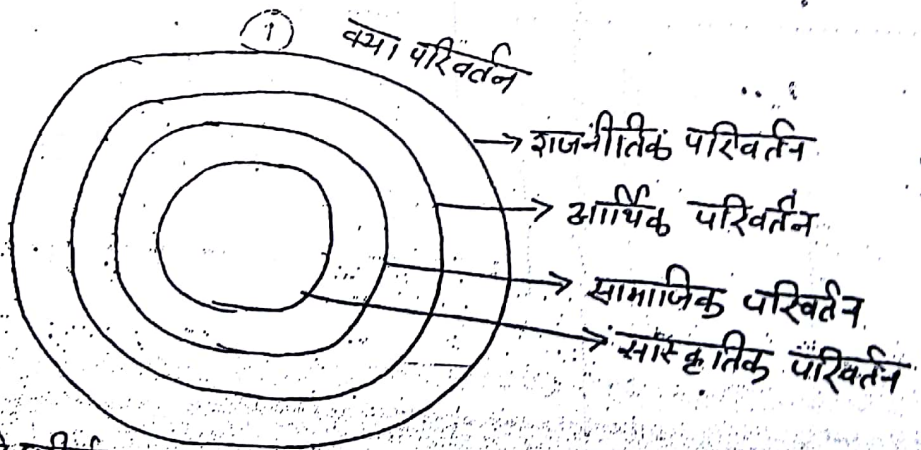 ①
क्या परिवर्तन
राजनीतिक परिवर्तन
आर्थिक परिवर्तन
सामाजिक परिवर्तन
सांस्कृतिक परिवर्तन